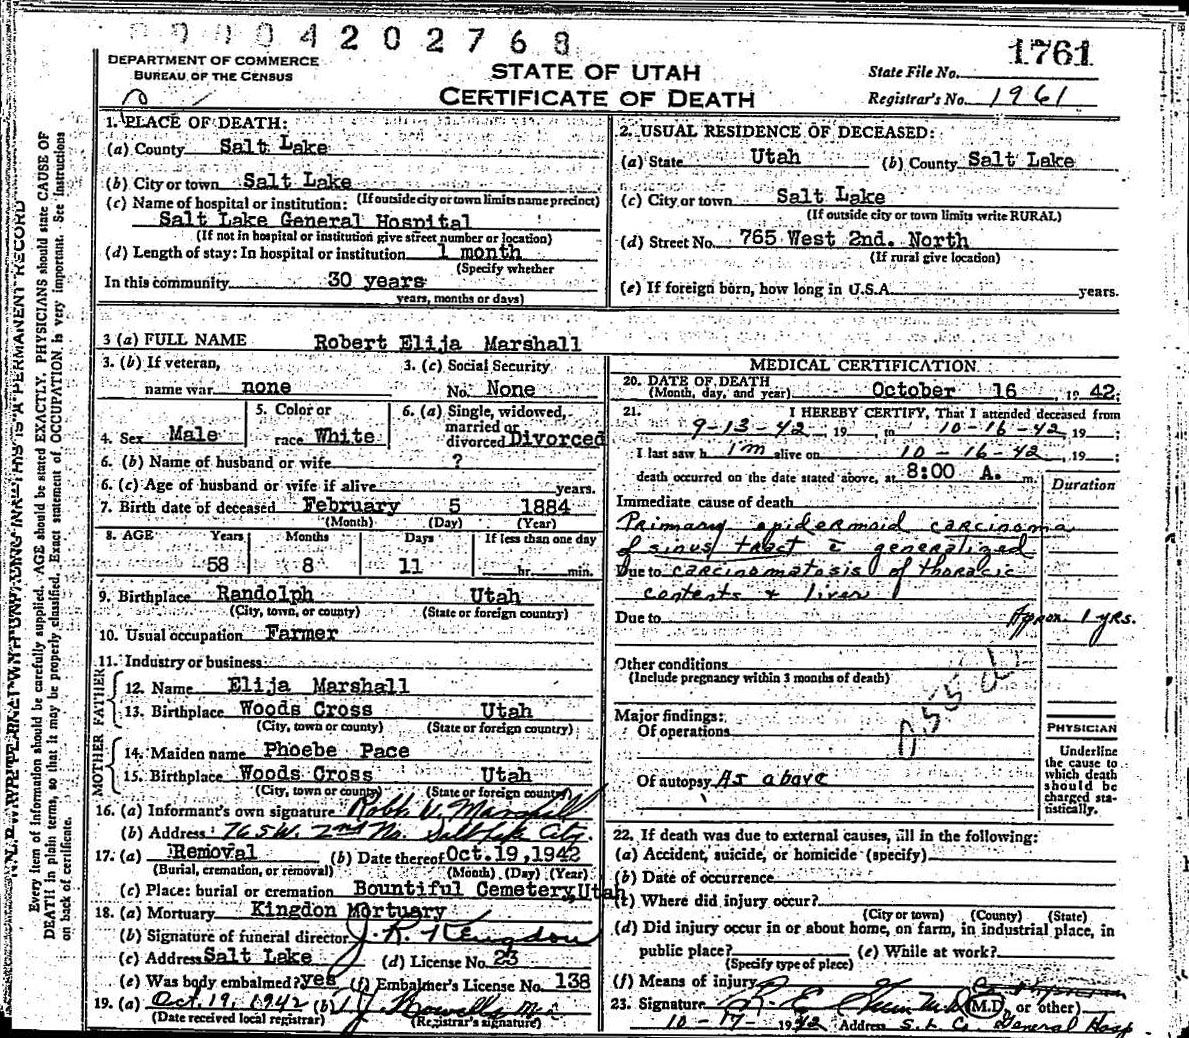 00004202768
1761
DEPARTMENT OF COMMERCE
BUREAU OF THE CENSUS
STATE OF UTAH
CERTIFICATE OF DEATH
State File No.
Registrar's No. 1961
N.B. WRITE PLAINLY WITH UNFADING INK—THIS IS A PERMANENT RECORD
Every item of information should be carefully supplied. AGE should be stated EXACTLY. PHYSICIANS should state CAUSE OF
DEATH in plain terms, so that it may be properly classified. Exact statement of OCCUPATION is very important. See Instructions
on back of certificate.
1. PLACE OF DEATH:
(a) County Salt Lake
(b) City or town Salt Lake
(If outside city or town limits name precinct)
(c) Name of hospital or institution:
Salt Lake General Hospital
(If not in hospital or institution give street number or location)
(d) Length of stay: In hospital or institution 1 month
(Specify whether
In this community 30 years
years, months or days)
2. USUAL RESIDENCE OF DECEASED:
(a) State Utah (b) County Salt Lake
(c) City or town Salt Lake
(If outside city or town limits write RURAL)
(d) Street No. 765 West 2nd. North
(If rural give location)
(e) If foreign born, how long in U.S.A. years.
3 (a) FULL NAME Robert Elija Marshall
3. (b) If veteran,
name war none
3. (c) Social Security
No. None
4. Sex Male
5. Color or
race White
6. (a) Single, widowed,
married or
divorced Divorced
6. (b) Name of husband or wife ?
6. (c) Age of husband or wife if alive years.
7. Birth date of deceased February 5 1884
(Month) (Day) (Year)
8. AGE Years Months Days If less than one day
58 8 11 hr. min.
9. Birthplace Randolph Utah
(City, town, or county) (State or foreign country)
10. Usual occupation Farmer
11. Industry or business
FATHER
12. Name Elija Marshall
13. Birthplace Woods Cross Utah
(City, town or county) (State or foreign country)
MOTHER
14. Maiden name Phoebe Pace
15. Birthplace Woods Cross Utah
(City, town or county) (State or foreign country)
16. (a) Informant's own signature Robt. V. Marshall
(b) Address: 765 W. 2nd No. Salt Lake City.
17. (a) Removal (b) Date thereof Oct. 19, 1942
(Burial, cremation, or removal) (Month) (Day) (Year)
(c) Place: burial or cremation Bountiful Cemetery, Utah
18. (a) Mortuary Kingdon Mortuary
(b) Signature of funeral director J. R. Kingdon
(c) Address Salt Lake (d) License No. 23
(e) Was body embalmed? yes (f) Embalmer's License No. 138
19. (a) Oct. 19, 1942 (b)
(Date received local registrar) (Registrar's signature)
MEDICAL CERTIFICATION
20. DATE OF DEATH
(Month, day, and year) October 16, 1942;
21. I HEREBY CERTIFY, That I attended deceased from
9-13-42, 19 , to 10-16-42, 19 ;
I last saw h im alive on 10-16-42, 19 ;
death occurred on the date stated above, at 8:00 A. m.
Duration
Immediate cause of death
Primary epidermoid carcinoma
of sinus tract c̄ generalized
Due to carcinomatosis of thoracic
contents & liver
Due to
Approx. 1 yrs.
Other conditions
(Include pregnancy within 3 months of death)
Major findings:
Of operations
Of autopsy As above
PHYSICIAN
Underline
the cause to
which death
should be
charged sta-
tistically.
22. If death was due to external causes, fill in the following:
(a) Accident, suicide, or homicide (specify)
(b) Date of occurrence
(c) Where did injury occur?
(City or town) (County) (State)
(d) Did injury occur in or about home, on farm, in industrial place, in
public place? (e) While at work?
(Specify type of place)
(f) Means of injury
23. Signature R. E. (M.D. or other)
10-17-1942 Address S. L. C. General Hosp.